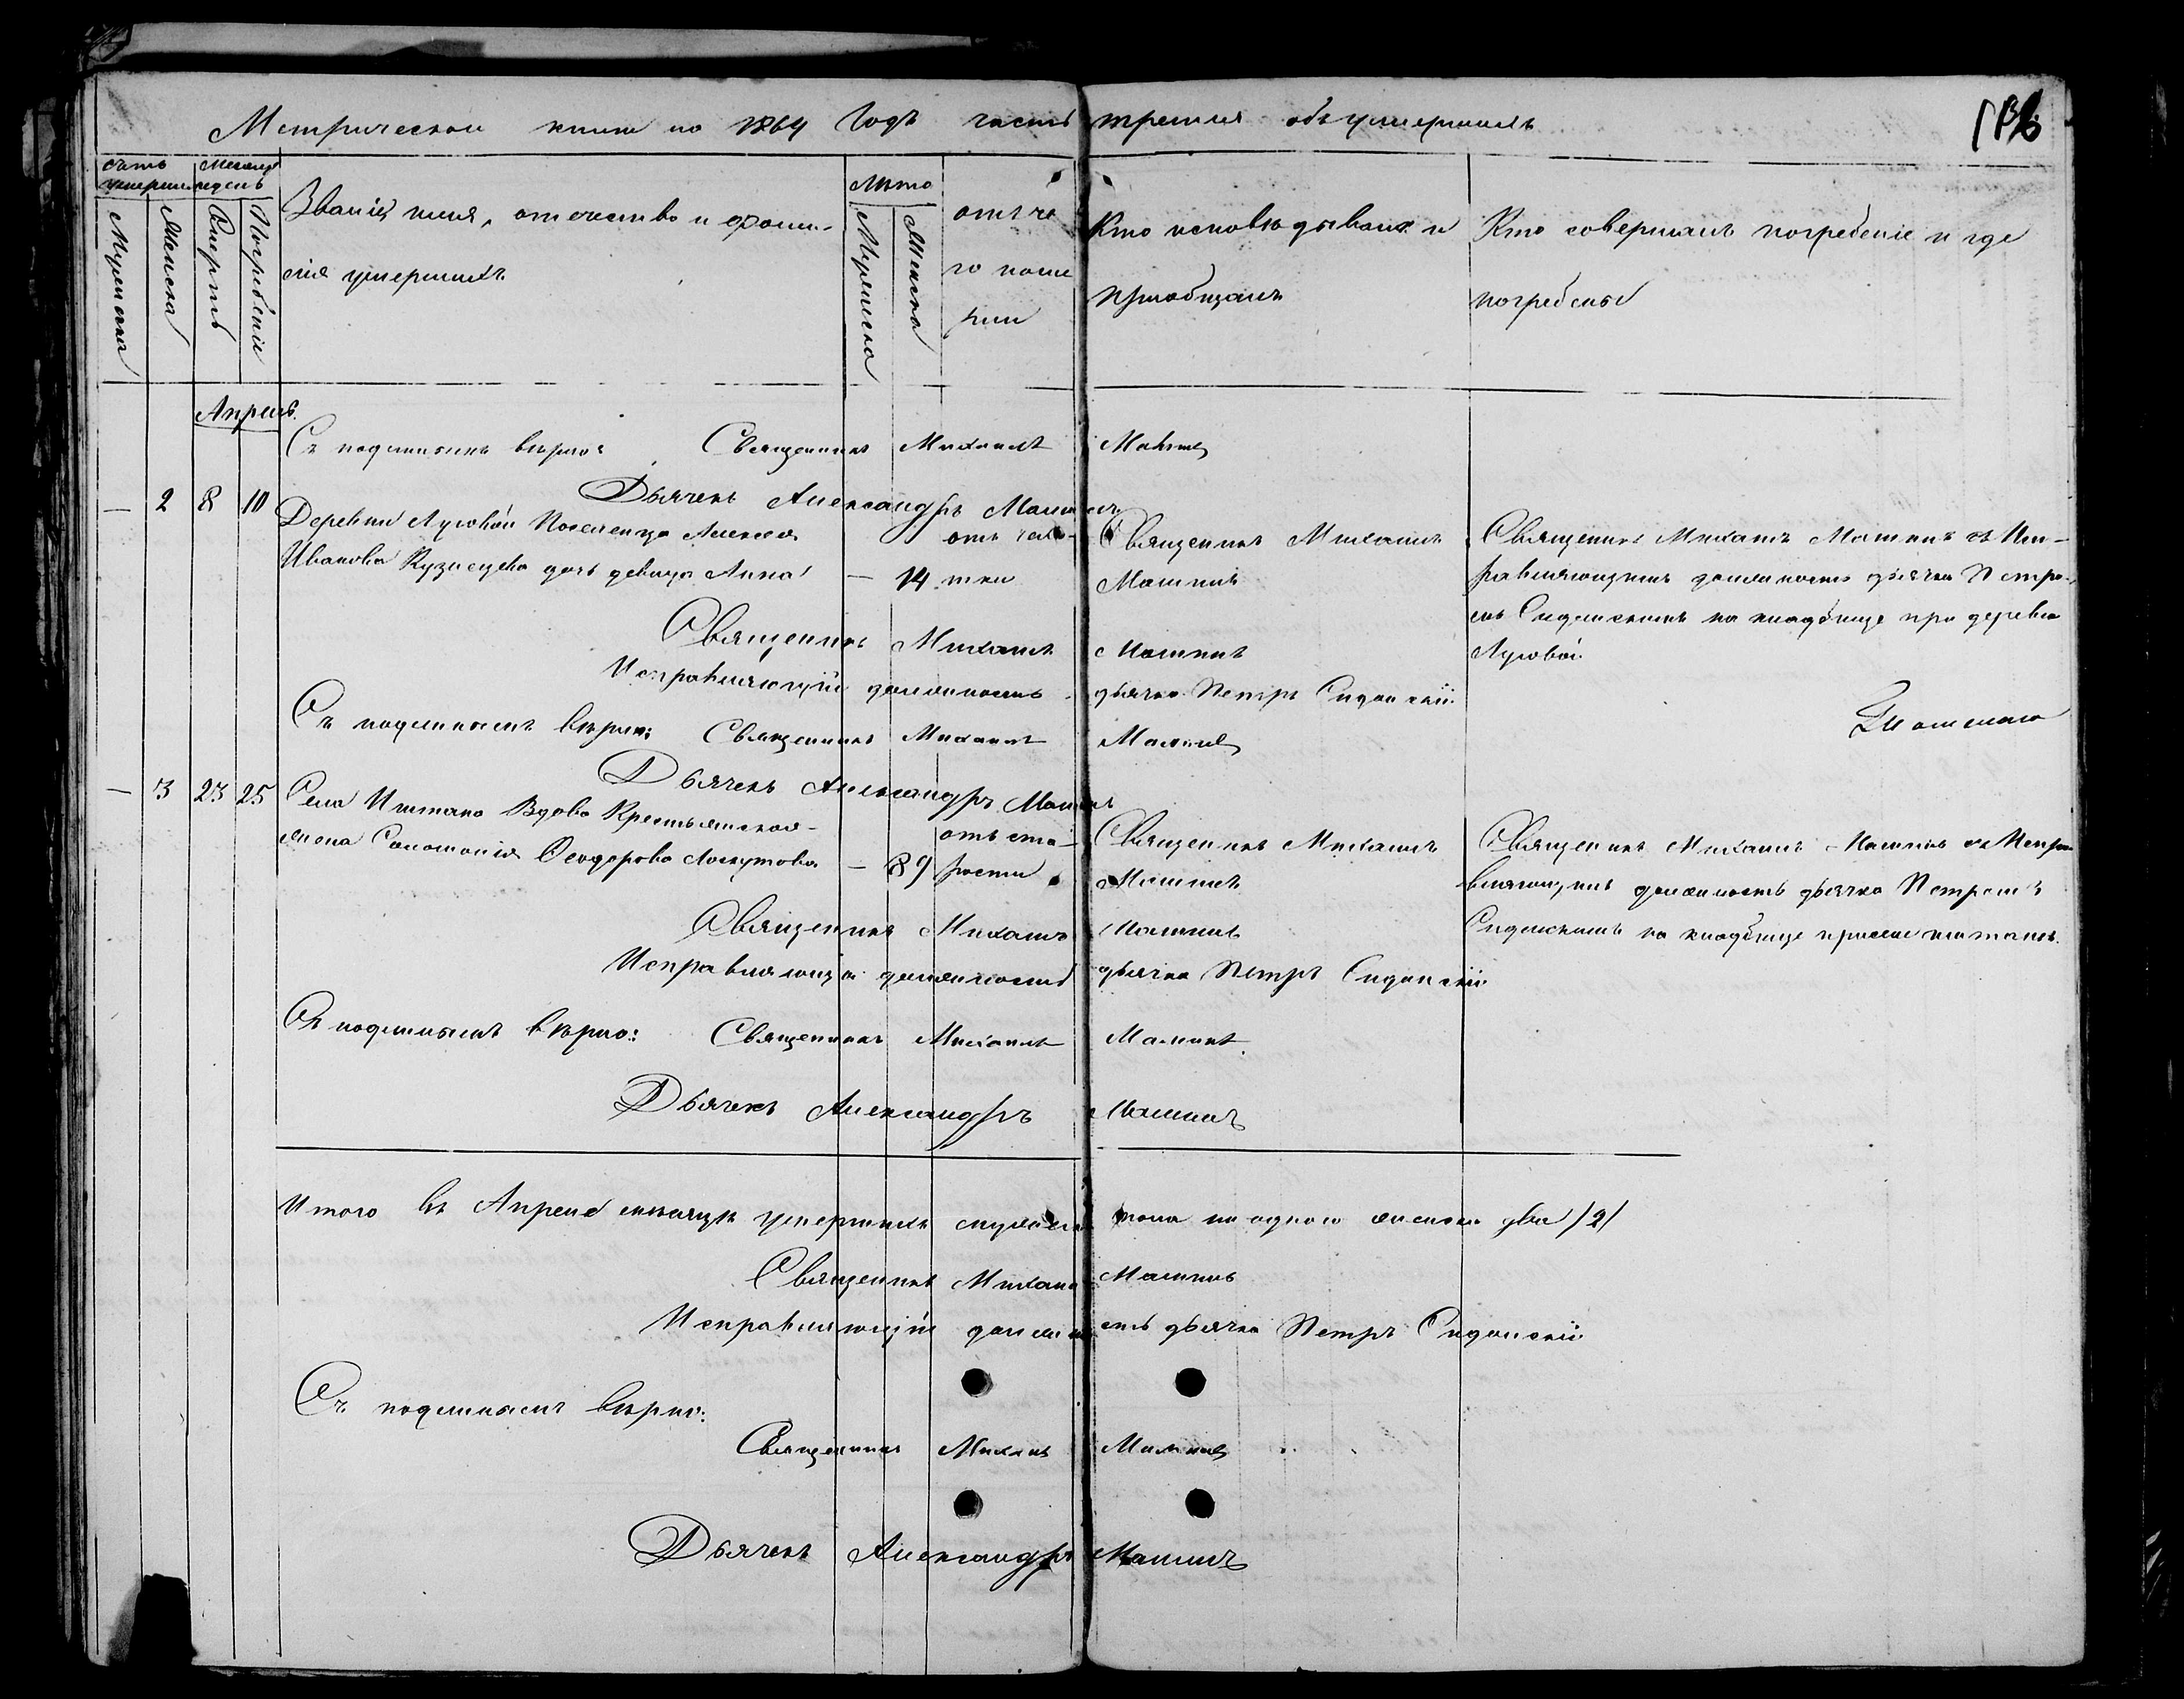 Метрической книги на 1864 годъ часть третія объ умершихъ
Счетъ умершихъ
Месяцъ и день
Мужеска
Женска
Смерть
Погребеніе
Званіе, имя, отечество и фами-
лія умершихъ
Лѣта
Мужеска
Женска
отъ че
го поме
рли
Кто исповѣдывалъ и
пріобщалъ
Кто совершалъ погребеніе и где
погребены
Апрель.
Съ подлиннымъ вѣрно: Священникъ Михаилъ
Дьячекъ Александръ Маминъ
— 2 8 10
Деревни Луговой Поселенца Алексея
Иванова Кузнецова дочь девица Анна — 14
отъ чахо-
тки
Священникъ Михаилъ
Маминъ
Священникъ Михаилъ Маминъ съ Исп-
равляющимъ должность дьячка Петро-
мъ Сидонскимъ на кладбище при деревне
Луговой.
Священникъ Михаилъ Маминъ
Исправляющій должность дьячка Петръ Сидонскій
Съ подлиннымъ вѣрно: Священникъ Михаилъ Маминъ
Дьячекъ Александръ Маминъ
— 3 23 25
Села Иштана Вдова Крестьянская
жена Соломонія Ѳеодорова Лоскутова — 89
отъ ста-
рости
Священникъ Михаилъ
Маминъ
Священникъ Михаилъ Маминъ съ Испра
вляющимъ должность дьячка Петромъ
Сидонскимъ на кладбище при селе иштанъ.
Священникъ Михаилъ Маминъ
Исправляющій должность дьячка Петръ Сидонскій
Съ подлиннымъ вѣрно: Священникъ Михаилъ Маминъ
Дьячекъ Александръ Маминъ
Итого въ Апрелѣ месяцѣ умершихъ мужеска пола ни одного женска два /2/
Священникъ Михаилъ Маминъ
Исправляющій должность дьячка Петръ Сидонскій
Съ подлиннымъ вѣрно:
Священникъ Михаилъ Маминъ
Дьячекъ Александръ Маминъ